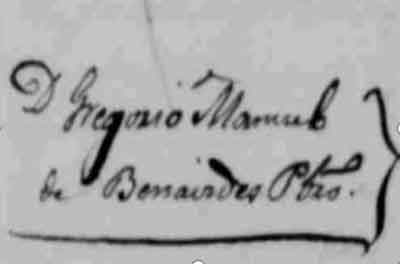 D Gregorio Manuel
de Benavides Pbro.